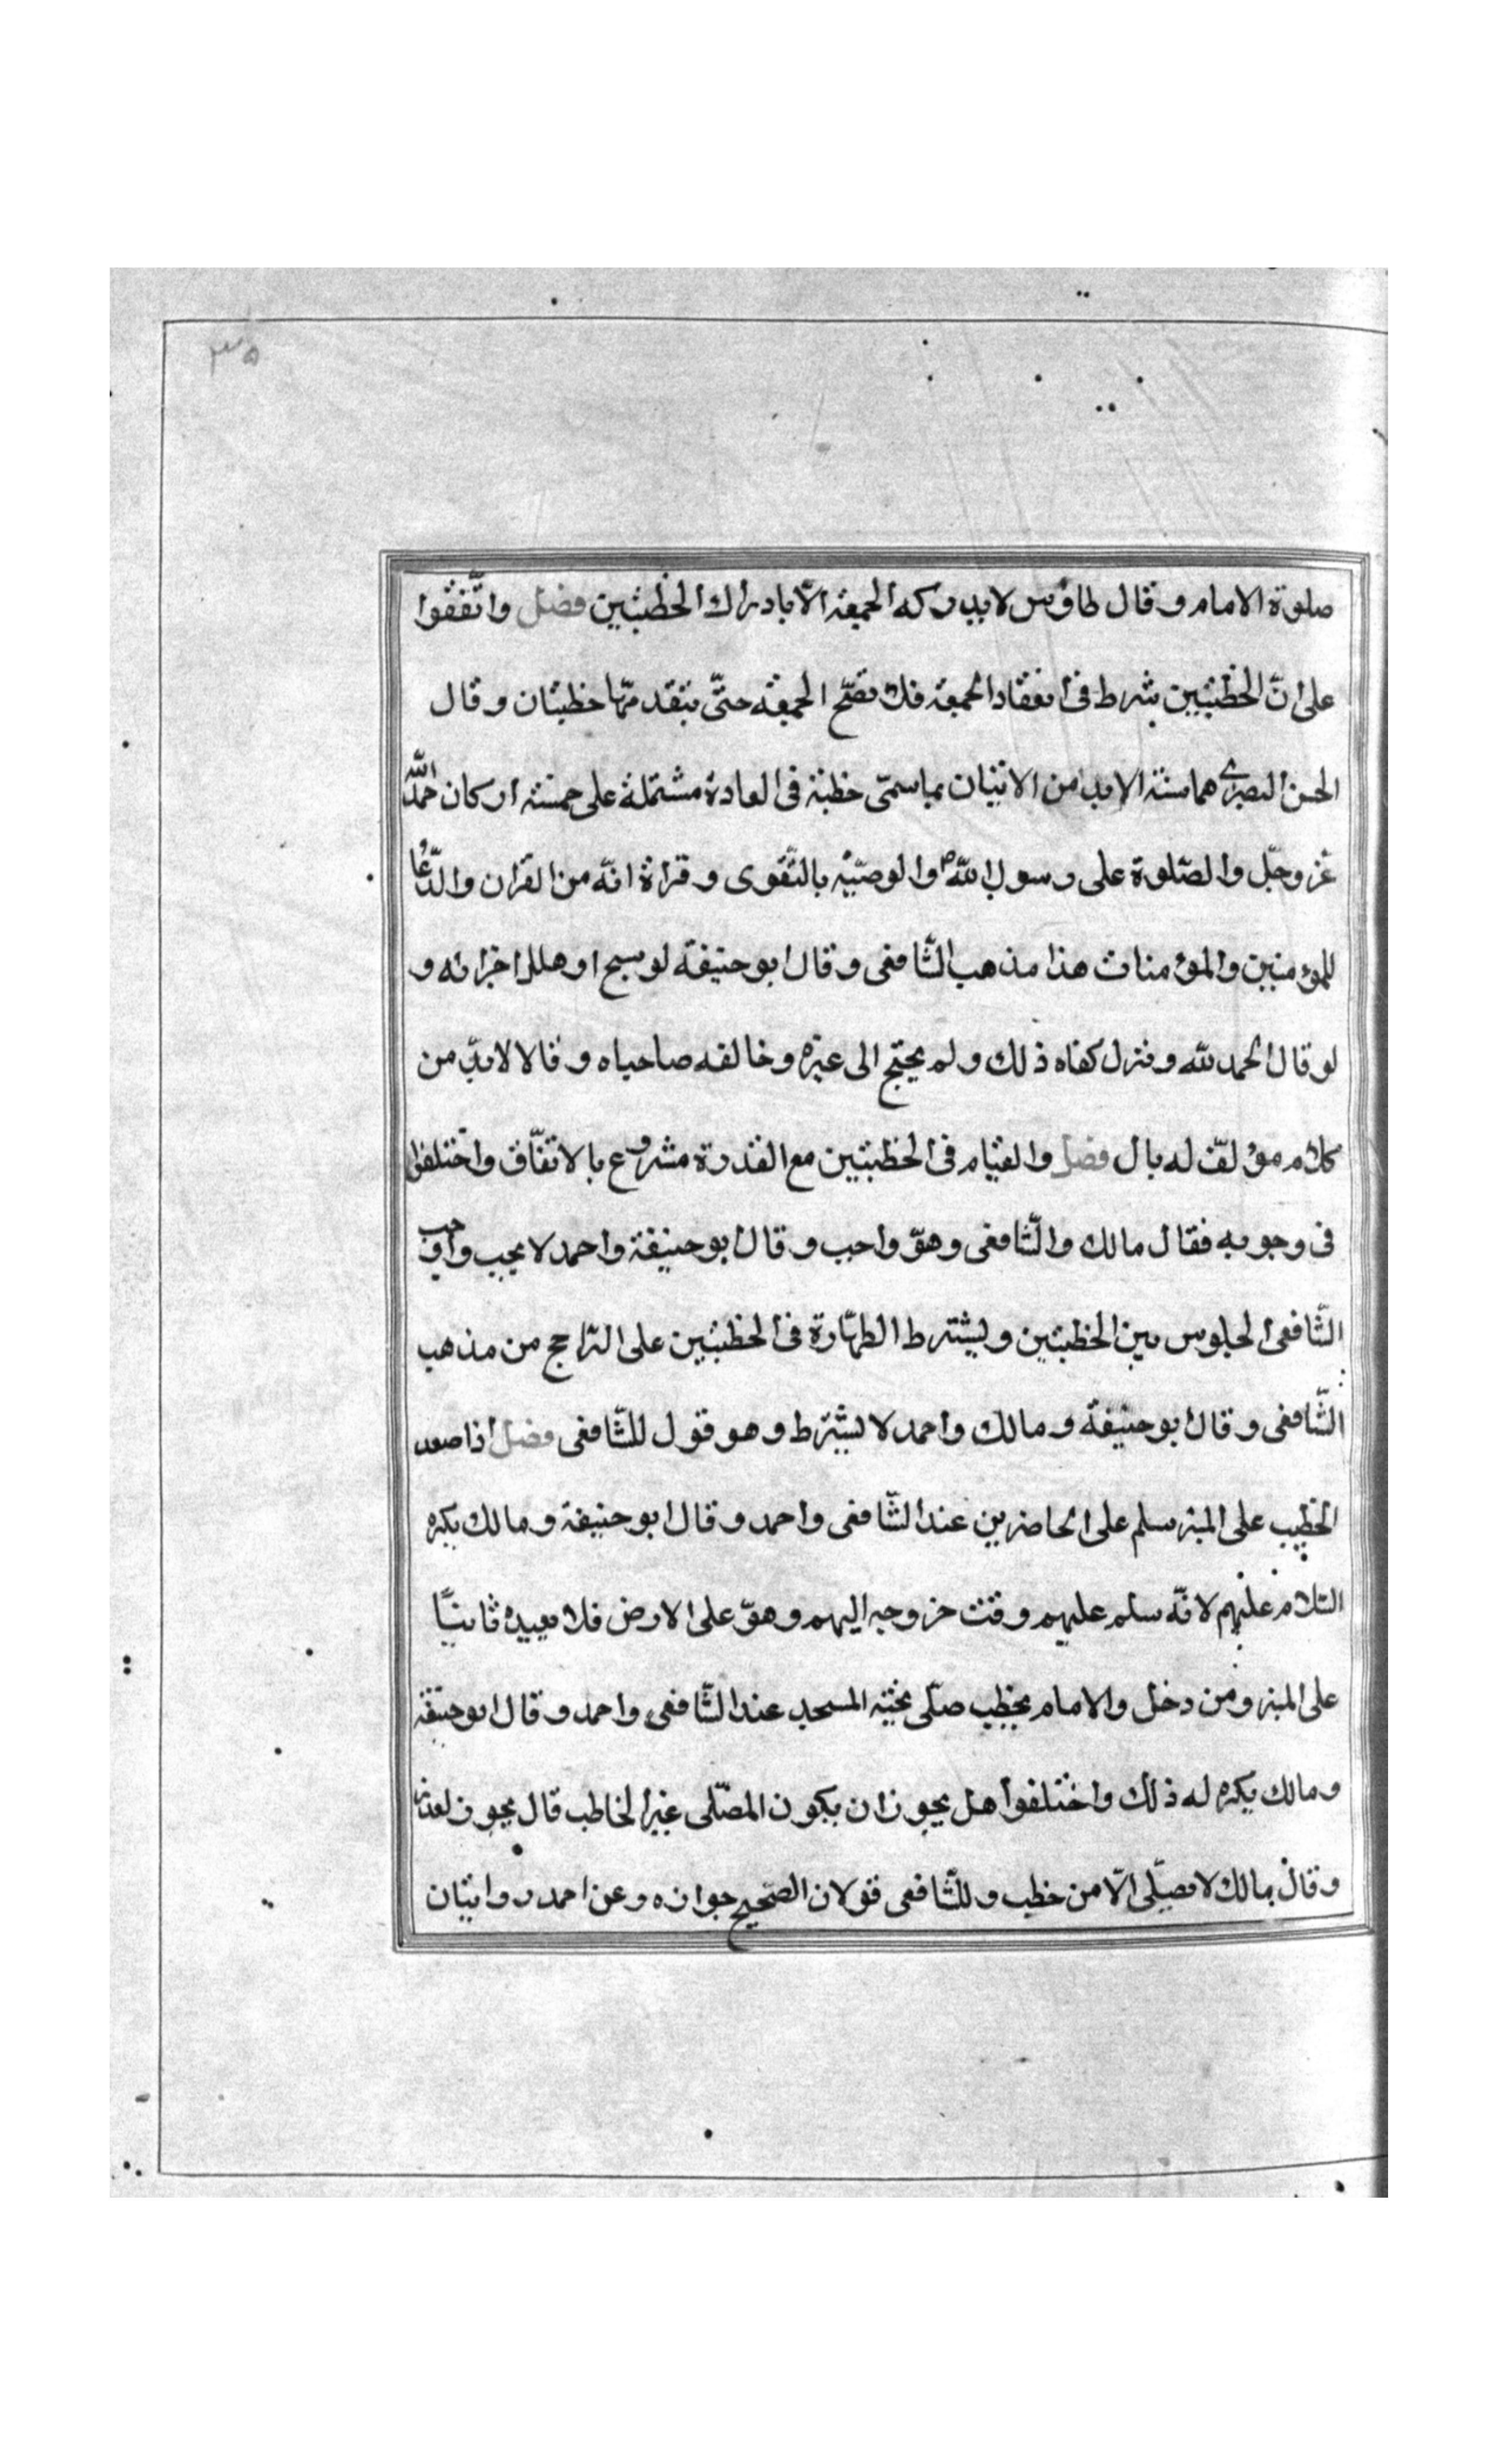 ۳۵
صلوة الامام وقال طاوس لا يدركه الجمعة الّا بادراك الخطبتين فصل واتّفقوا
على انّ الخطبتين شرط في انعقاد الجمعة فلا تصحّ الجمعة حتّى يتقدّمها خطبتان وقال
الحسن البصري هما سنّة الا بدّ من الاتيان بما يسمّى خطبة في العادة مشتملة على خمسة اركان حمد الله
عزّ وجلّ والصّلوة على رسول الله ص والوصيّة بالتّقوى وقراة اية من القران والدّعاء
للمؤمنين والمؤمنات هذا مذهب الشّافعي وقال ابو حنيفة لو سبح او هلل اجزاته و
لو قال الحمد لله ونزل كفاه ذلك ولم يحتج الى غيره وخالفه صاحباه وقالا لا بدّ من
كلام مؤلّف له بال فصل والقيام في الخطبتين مع القدرة مشروع بالاتّفاق واختلفوا
في وجوبه فقال مالك والشّافعي وهو واجب وقال ابو حنيفة واحمد لا يجب واوجب
الشّافعي الجلوس بين الخطبتين ويشترط الطهارة في الخطبتين على الراجح من مذهب
الشّافعي وقال ابو حنيفة ومالك واحمد لا يشترط وهو قول للشّافعي فصل اذا صعد
الخطيب على المنبر سلم على الحاضرين عند الشّافعي واحمد وقال ابو حنيفة ومالك يكره
السّلام عليهم لانّه سلم عليهم وقت خروجه اليهم وهو على الارض فلا يعيده ثانيًا
على المنبر ومن دخل والامام يخطب صلّى تحيّة المسجد عند الشّافعي واحمد وقال ابو حنيفة
ومالك يكره له ذلك واختلفوا هل يجوز ان يكون المصلّى غير الخاطب قال يجوز لعذر
وقال مالك لا يصلّي الّا من خطب وللشّافعي قولان الصّحيح جوازه وعن احمد روايتان